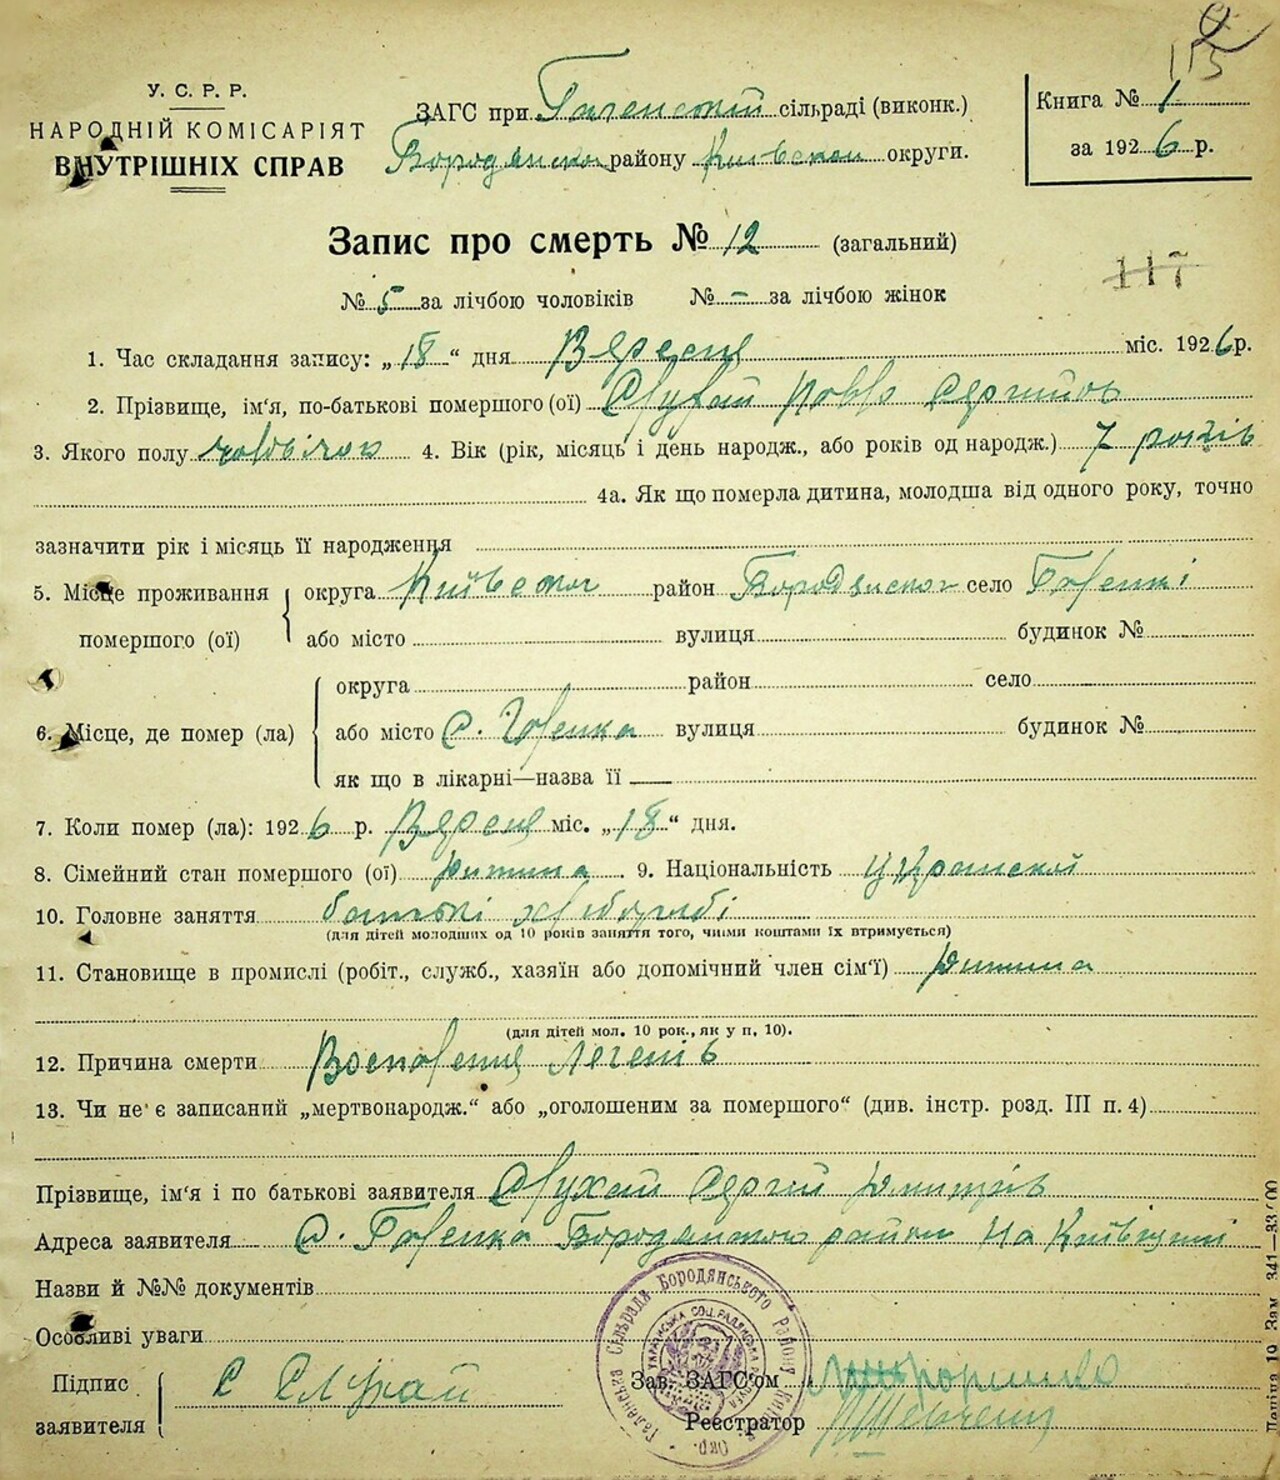 2
115
У. С. Р. Р.
НАРОДНІЙ КОМІСАРІЯТ
ВНУТРІШНІХ СПРАВ
ЗАГС при сільраді (виконк.)
Бородянского району Київскои округи.
Книга № 1
за 1926 р.
Запис про смерть № 12 (загальний)
117
№ 5 за лічбою чоловіків № – за лічбою жінок
1. Час складання запису: „18“ дня Вересня міс. 1926 р.
2. Прізвище, ім‘я, по-батькові помершого (ої) Слухай Павло Сергийов
3. Якого полу 4. Вік (рік, місяць і день народж., або років од народж.) 7 років
4а. Як що померла дитина, молодша від одного року, точно
зазначити рік і місяць її народження
5. Місце проживання округа Київског район Бородянског село
помершого (ої) або місто вулиця будинок №
округа район село
6. Місце, де помер (ла) або місто С. вулиця будинок №
як що в лікарні—назва її
7. Коли помер (ла): 1926 р. Вересня міс. „18“ дня.
8. Сімейний стан помершого (ої) дитина 9. Національність
10. Головне заняття батькі хлібороби
(для дітей молодших од 10 років заняття того, чиїми коштами їх втримується)
11. Становище в промислі (робіт., служб., хазяїн або допомічний член сім‘ї) дитина
(для дітей мол. 10 рок., як у п. 10).
12. Причина смерти Воспаления Легенів
13. Чи не є записаний „мертвонародж.“ або „оголошеним за помершого“ (див. інстр. розд. III п. 4)
Прізвище, ім‘я і по батькові заявителя Слухай Сергий Дмитрів
Адреса заявителя С. Бородянского району На Київщині
Назви й №№ документів
Особливі уваги
Підпис заявителя С Слухай
Зав. ЗАГС‘ом
Реєстратор
Сільради Бородянського Району
УКРАЇНСЬКА СОЦ. РАДЯНСЬКА
Зам. 341—33700